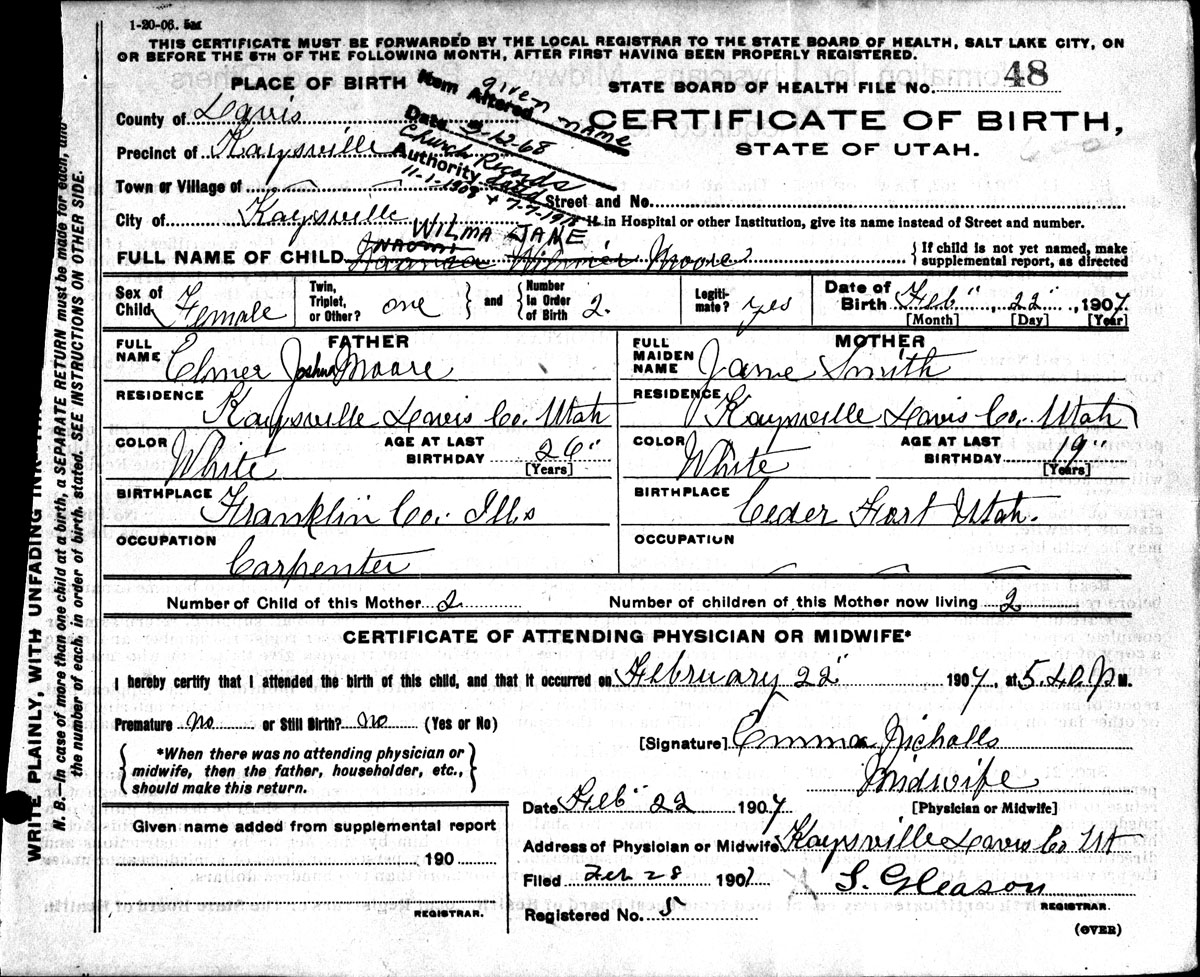 1-20-06. 5M
THIS CERTIFICATE MUST BE FORWARDED BY THE LOCAL REGISTRAR TO THE STATE BOARD OF HEALTH, SALT LAKE CITY, ON
OR BEFORE THE 5TH OF THE FOLLOWING MONTH, AFTER FIRST HAVING BEEN PROPERLY REGISTERED.
PLACE OF BIRTH
STATE BOARD OF HEALTH FILE NO. 48
Item Altered given name
Date 2-12-68
Authority Church Records
11-1-1908 + 7-7-1918
County of Davis
CERTIFICATE OF BIRTH,
Precinct of Kaysville
STATE OF UTAH.
600
Town or Village of
Street and No.
City of Kaysville
If in Hospital or other Institution, give its name instead of Street and number.
WILMA JANE
NAOMI
FULL NAME OF CHILD Wilmer Moore
{ If child is not yet named, make supplemental report, as directed
Sex of Child Female
Twin, Triplet, or Other? one } and { Number in Order of Birth 2.
Legiti-mate? yes
Date of Birth Feb" 22" , 1907
[Month] [Day] [Year]
FATHER
FULL NAME Elmer Joshua Moore
MOTHER
FULL MAIDEN NAME Jane Smith
RESIDENCE Kaysville Davis Co. Utah
RESIDENCE Kaysville Davis Co. Utah
COLOR White AGE AT LAST BIRTHDAY 26" [Years]
COLOR White AGE AT LAST BIRTHDAY 19" [Years]
BIRTHPLACE Franklin Co. Ills
BIRTHPLACE Ceder Fort Utah.
OCCUPATION Carpenter
OCCUPATION
Number of Child of this Mother 2
Number of children of this Mother now living 2
CERTIFICATE OF ATTENDING PHYSICIAN OR MIDWIFE*
I hereby certify that I attended the birth of this child, and that it occurred on February 22" 1907, at 5.40 P M.
Premature no or Still Birth? no (Yes or No)
[Signature] Emma Nicholls
Midwife
[Physician or Midwife]
{ *When there was no attending physician or
midwife, then the father, householder, etc.,
should make this return. }
Date Feb" 22 1907
Given name added from supplemental report
190
REGISTRAR.
Address of Physician or Midwife Kaysville Davis Co Ut
Filed Feb 28 1907 S. Gleason
REGISTRAR.
Registered No. 5
(OVER)
WRITE PLAINLY, WITH UNFADING INK
N. B.—In case of more than one child at a birth, a SEPARATE RETURN must be made for each, and
the number of each, in order of birth, stated. SEE INSTRUCTIONS ON OTHER SIDE.